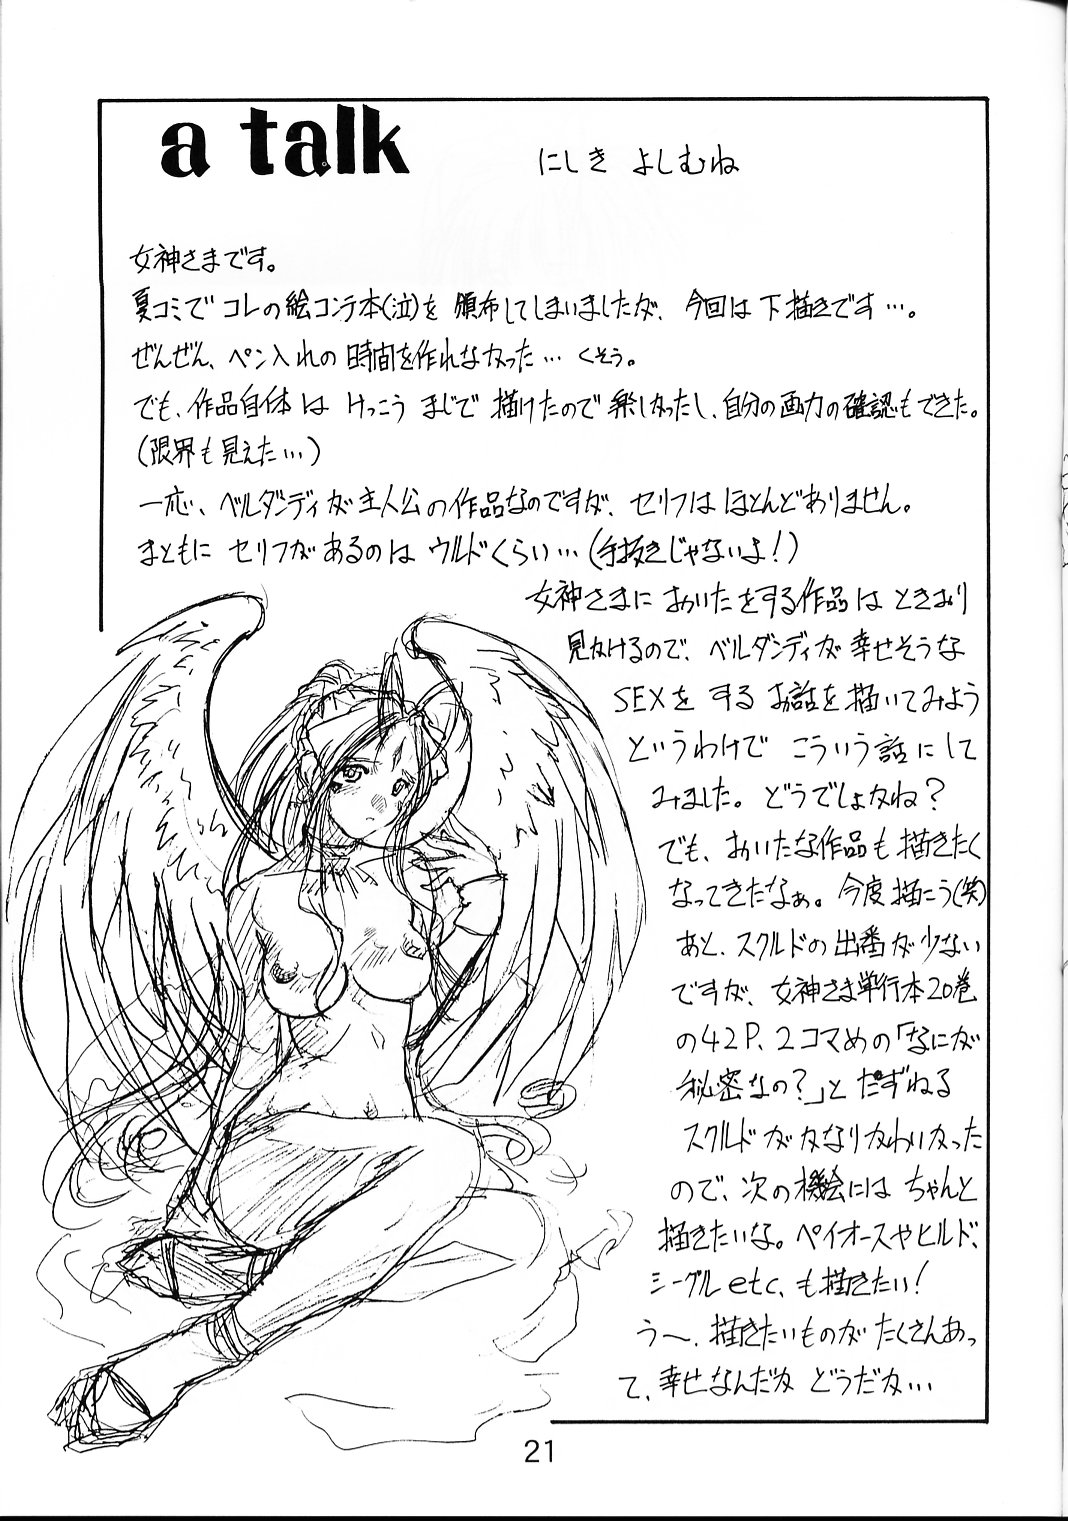 a talk
にしき よしむね
女神さまです。
夏コミで コレの絵コンテ本(泣)を 頒布してしまいましたが、今回は下描きです…。
ぜんぜん、ペン入れの時間を作れなかった… くそう。
でも、作品自体は けっこう まじで 描けたので 楽しかったし、自分の画力の確認もできた。
(限界も見えた…)
一応、ベルダンディが主人公の作品なのですが、セリフは ほとんどありません。
まともに セリフがあるのは ウルドくらい…(手抜きじゃないよ!)
女神さまに おいたをする作品は ときおり
見かけるので、ベルダンディが幸せそうな
SEXを する お話を描いてみよう
というわけで こういう話にして
みました。どうでしょかね?
でも、おいたな作品も描きたく
なってきたなぁ。今度描こう(笑)
あと、スクルドの出番が少ない
ですが、女神さま単行本20巻
の42P、2コマめの「なにが
秘密なの?」と たずねる
スクルドが かなりかわいかった
ので、次の機会には ちゃんと
描きたいな。ペイオースやヒルド、
シーグルetc、も描きたい!
う〜、描きたいものが たくさんあっ
て、幸せなんだか どうだか…
21